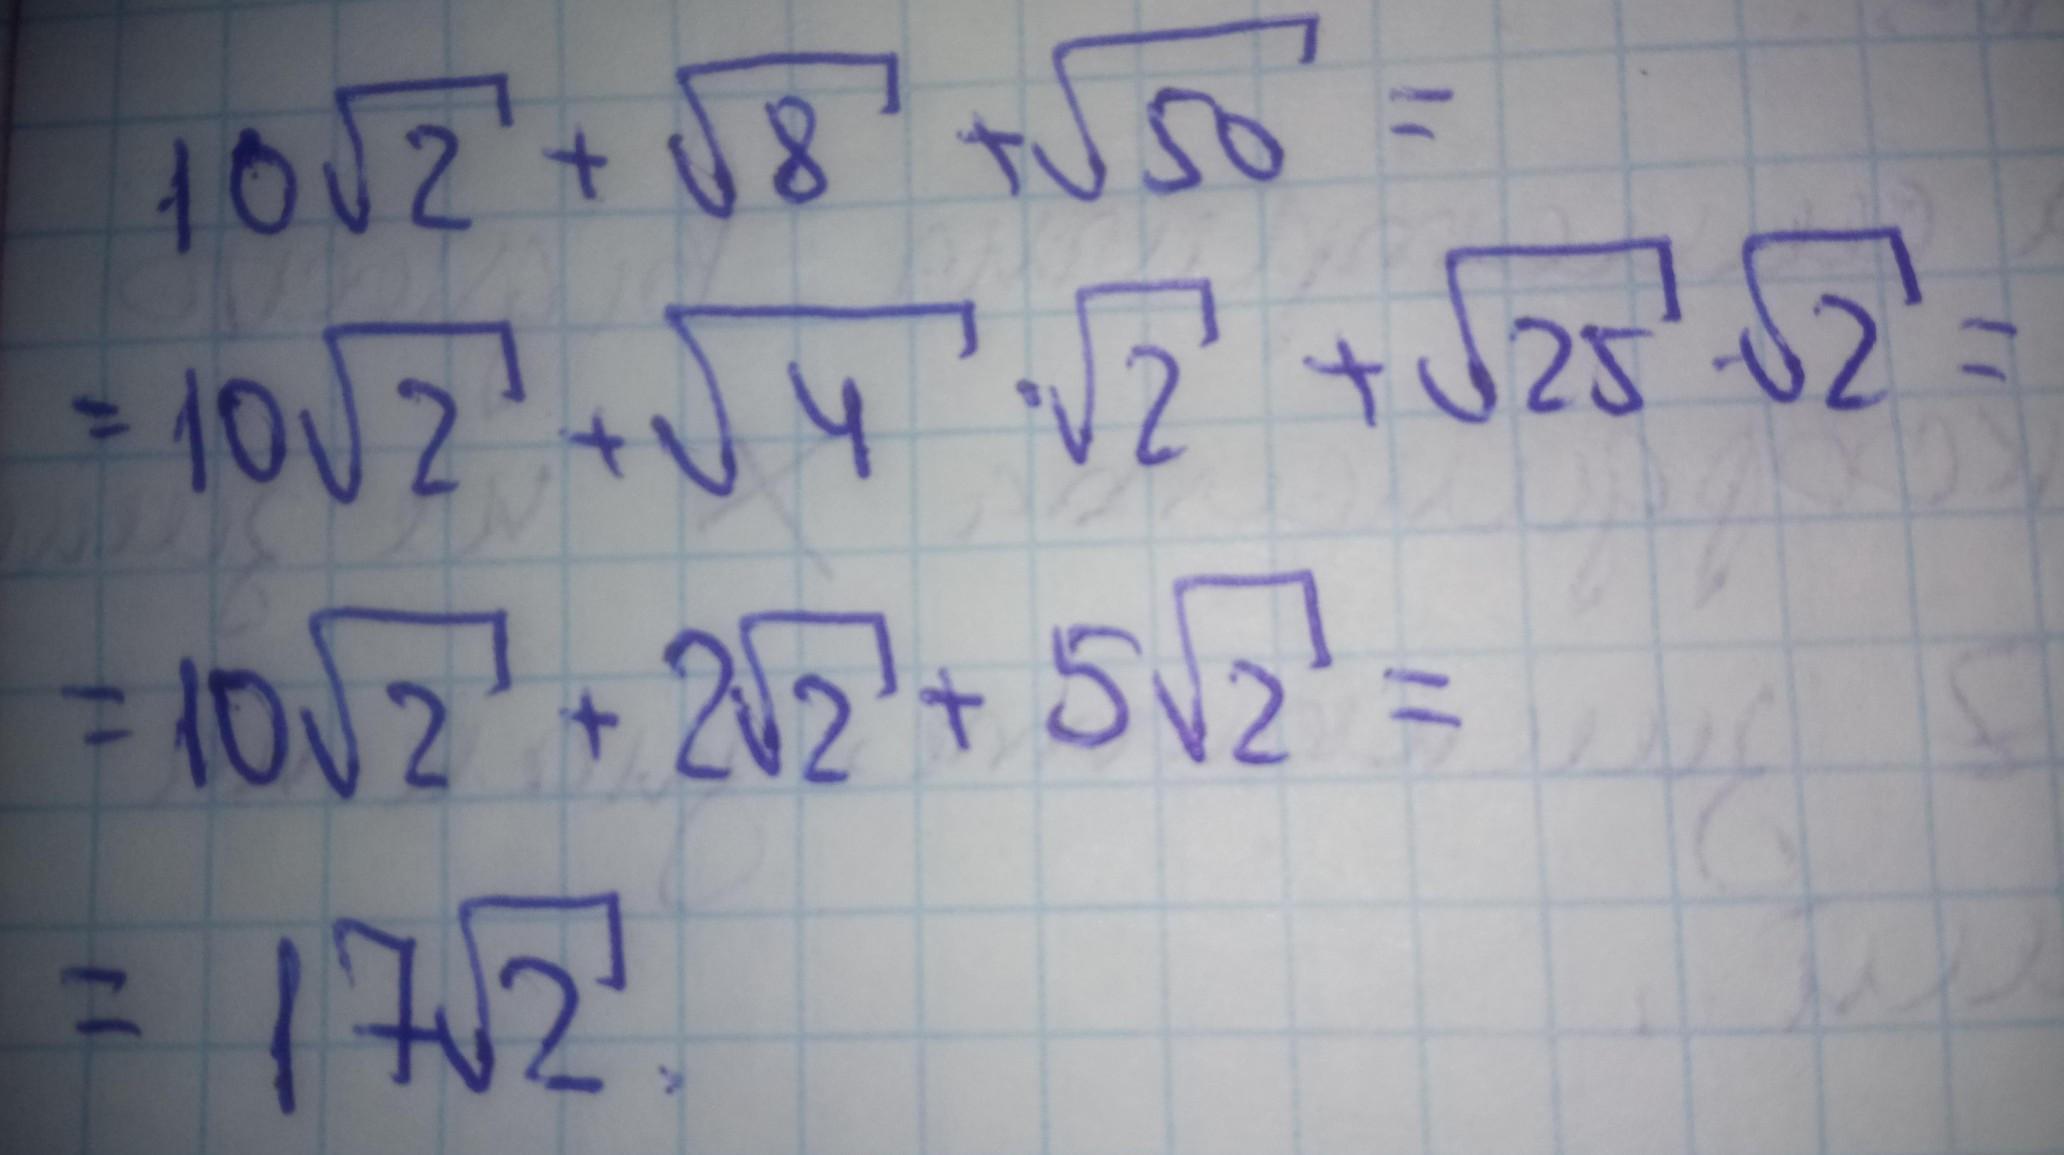 10√2 + √8 + √50 =
= 10√2 + √4 · √2 + √25 · √2 =
= 10√2 + 2√2 + 5√2 =
= 17√2.